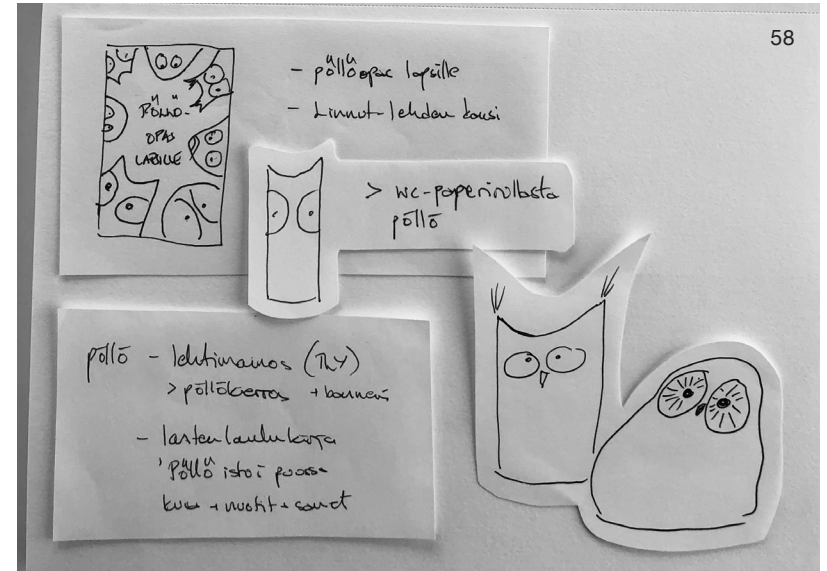 58
PÖLLÖ-
OPAS
LAPSILLE
- pöllöopas lapsille
- Linnut-lehden kansi
> wc-paperirullasta
pöllö
pöllö - lehtimainos (TLY)
> pöllökerros +
- lasten laulukirja
'Pöllö istoi puussa
kuva + nuotit + sanat